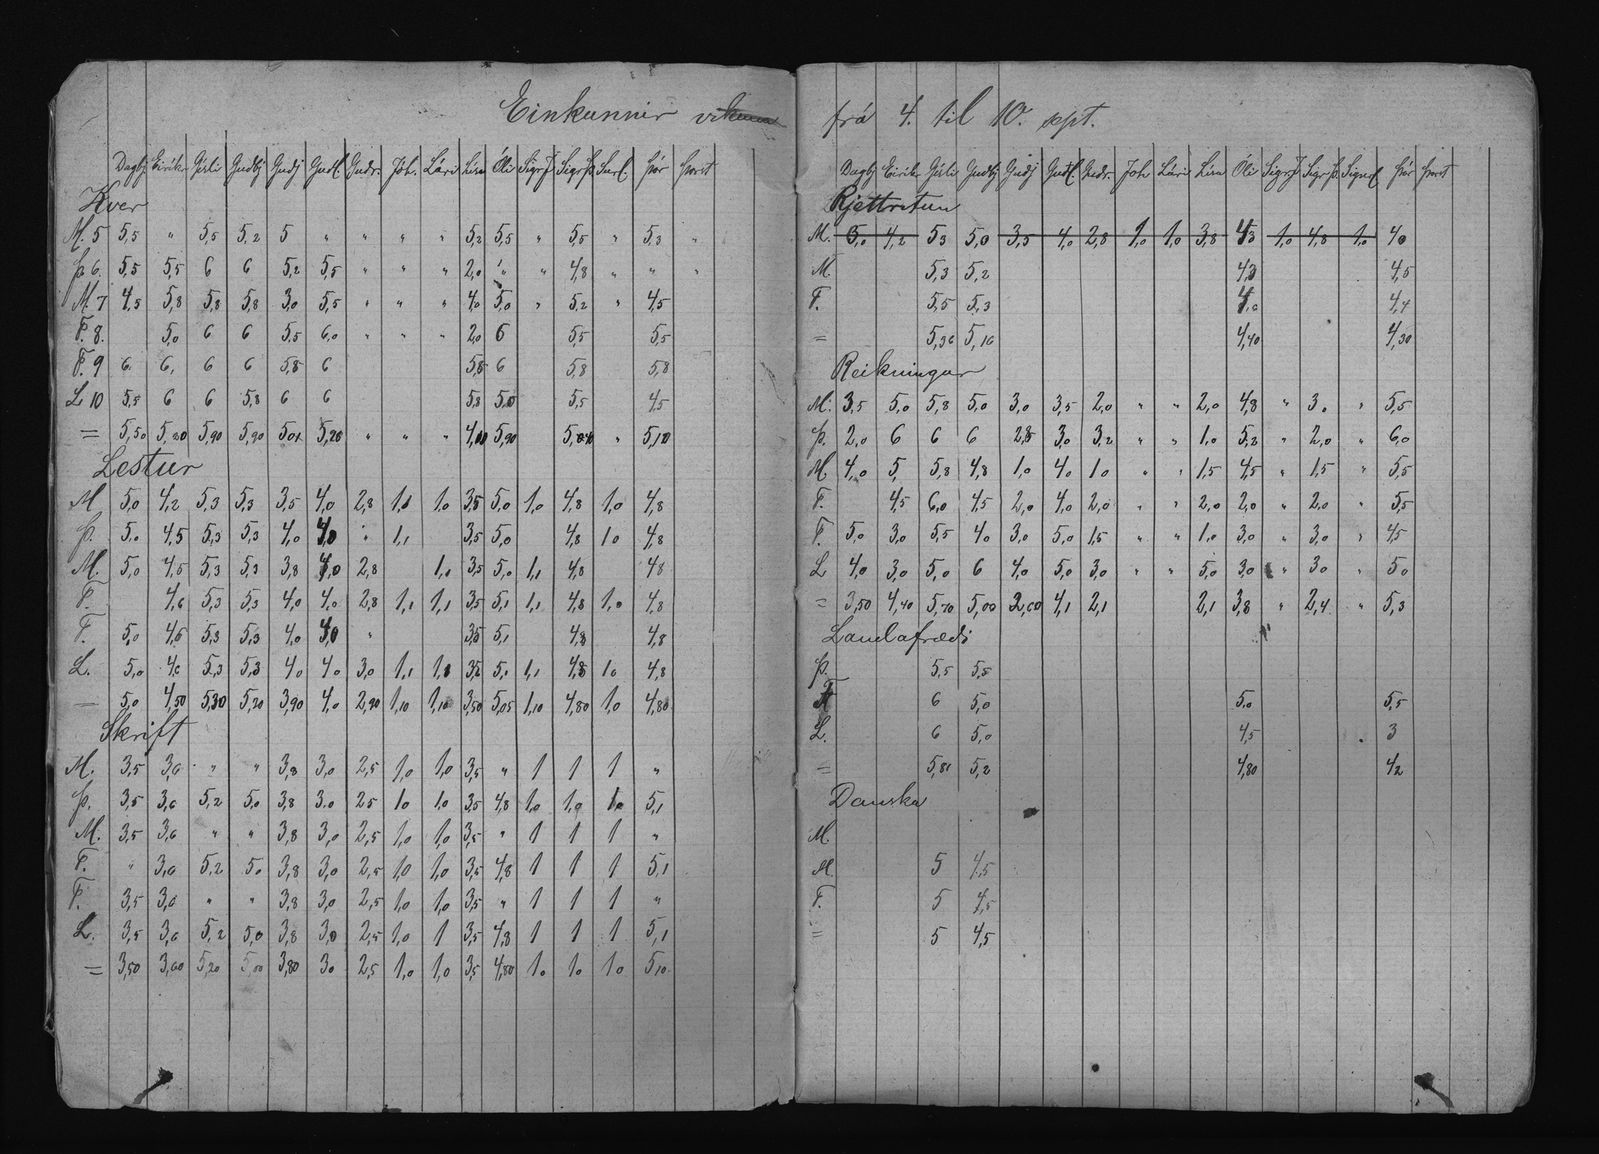 Einkunnir vikuna
Dagbj Eiríkr Gísli Gudbj Gudj Gudl. Gudr. Jóh. Lári Lára Óli Sigrj Sigrþ. Þór Þorst
Kver
M. 5 5,5 " 5,5 5,2 5 " " " " 5,2 5,5 " 5,5 " 5,3 "
Þ 6. 5,5 5,5 6 6 5,2 5,5 " " " 2,0 " " 4,8 " " "
M. 7 4,5 5,8 5,8 5,8 3,0 5,5 " " " 4,0 5,0 " 5,2 " 4,5
F. 8. 5,0 6 6 5,5 6,0 " " " 2,0 6 5,5 5,5
F. 9 6. 6, 6 6 5,8 6 5,8 6 5,8 5,8
L 10 5,5 6 6 5,8 6 6 5,8 5,0 5,5 4,5
= 5,50 5,20 5,90 5,90 5,20 " " " 5,90 " 5,10
Lestur
M 5,0 4,2 5,3 5,3 3,5 4,0 2,8 1,1 1,0 3,5 5,0 1,0 4,8 1,0 4,8
Þ. 5,0 4,5 5,3 5,3 4,0 4,0 " 1,1 3,5 5,0 4,8 1,0 4,8
M. 5,0 4,5 5,3 5,3 3,8 4,0 2,8 1,0 3,5 5,0 1,1 4,8 4,8
F. 4,6 5,3 5,3 4,0 4,0 2,8 1,1 1,1 3,5 5,1 1,1 4,8 1,0 4,8
F. 5,0 4,6 5,3 5,3 4,0 4,0 " 3,5 5,1 4,8 4,8
L. 5,0 4,6 5,3 5,3 4,0 4,0 3,0 1,1 1,1 3,5 5,1 1,1 4,8 1,0 4,8
= 5,0 4,50 5,30 5,20 3,90 4,0 2,90 1,10 1,10 3,50 5,05 1,10 4,80 1,0 4,80
Skrift
M. 3,5 3,6 " " 3,8 3,0 2,5 1,0 1,0 3,5 " 1 1 1 "
Þ. 3,5 3,6 5,2 5,0 3,8 3,0 2,5 1,0 1,0 3,5 4,8 1,0 1,0 1,0 5,1
M. 3,5 3,6 " " 3,8 3,0 2,5 1,0 1,0 3,5 " 1 1 1 "
F. " 3,6 5,2 5,0 3,8 3,0 2,5 1,0 1,0 3,5 4,8 1 1 1 5,1
F. 3,5 3,6 " " 3,8 3,0 2,5 1,0 1,0 3,5 " 1 1 1 "
L. 3,5 3,6 5,2 5,0 3,8 3,0 2,5 1,0 1 3,5 4,8 1 1 1 5,1
= 3,50 3,60 5,20 5,00 3,80 3,0 2,5 1,0 1,0 3,5 4,80 1,0 1,0 1,0 5,10
frá 4. til 10. sept.
Dagbj Eirík Gísli Gudbj Gudj Gudl Gudr. Jóh Lári Lára Óli Sigrj Sigrþ. Þór Þorst
Rjettritun
M. 5,0 4,2 5,3 5,0 3,5 4,0 2,8 1,0 1,0 3,8 4,3 1,0 4,8 1,0 4,0
M. 5,3 5,2 4,3 4,5
F. 5,5 5,3 4,4
= 5,36 5,16 4,40 4,30
Reikningur
M. 3,5 5,0 5,8 5,0 3,0 3,5 2,0 " " 2,0 4,8 " 3,0 " 5,5
Þ. 2,0 6 6 6 2,8 3,0 3,2 " " 1,0 5,2 " 2,0 " 6,0
M 4,0 5, 5,8 4,8 1,0 4,0 1,0 " " 1,5 4,5 " 1,5 " 5,5
F. 4,5 6,0 4,5 2,0 4,0 2,0 " " 2,0 2,0 " 2,0 " 5,5
F. 5,0 3,0 5,5 4,0 3,0 5,0 1,5 " " 1,0 3,0 " 3,0 " 4,5
L 4,0 3,0 5,0 6 4,0 5,0 3,0 " " 5,0 3,0 " 3,0 " 5,0
= 3,50 4,40 5,70 5,00 2,60 4,1 2,1 2,1 3,8 " 2,4 " 5,3
Landafrædi
Þ. 5,5 5,5
F 6 5,0 5,0 5,5
L. 6 5,0 4,5 3
= 5,81 5,2 4,80 4,2
Danska
M.
M. 5 4,5
F. 5 4,5
= 5 4,5